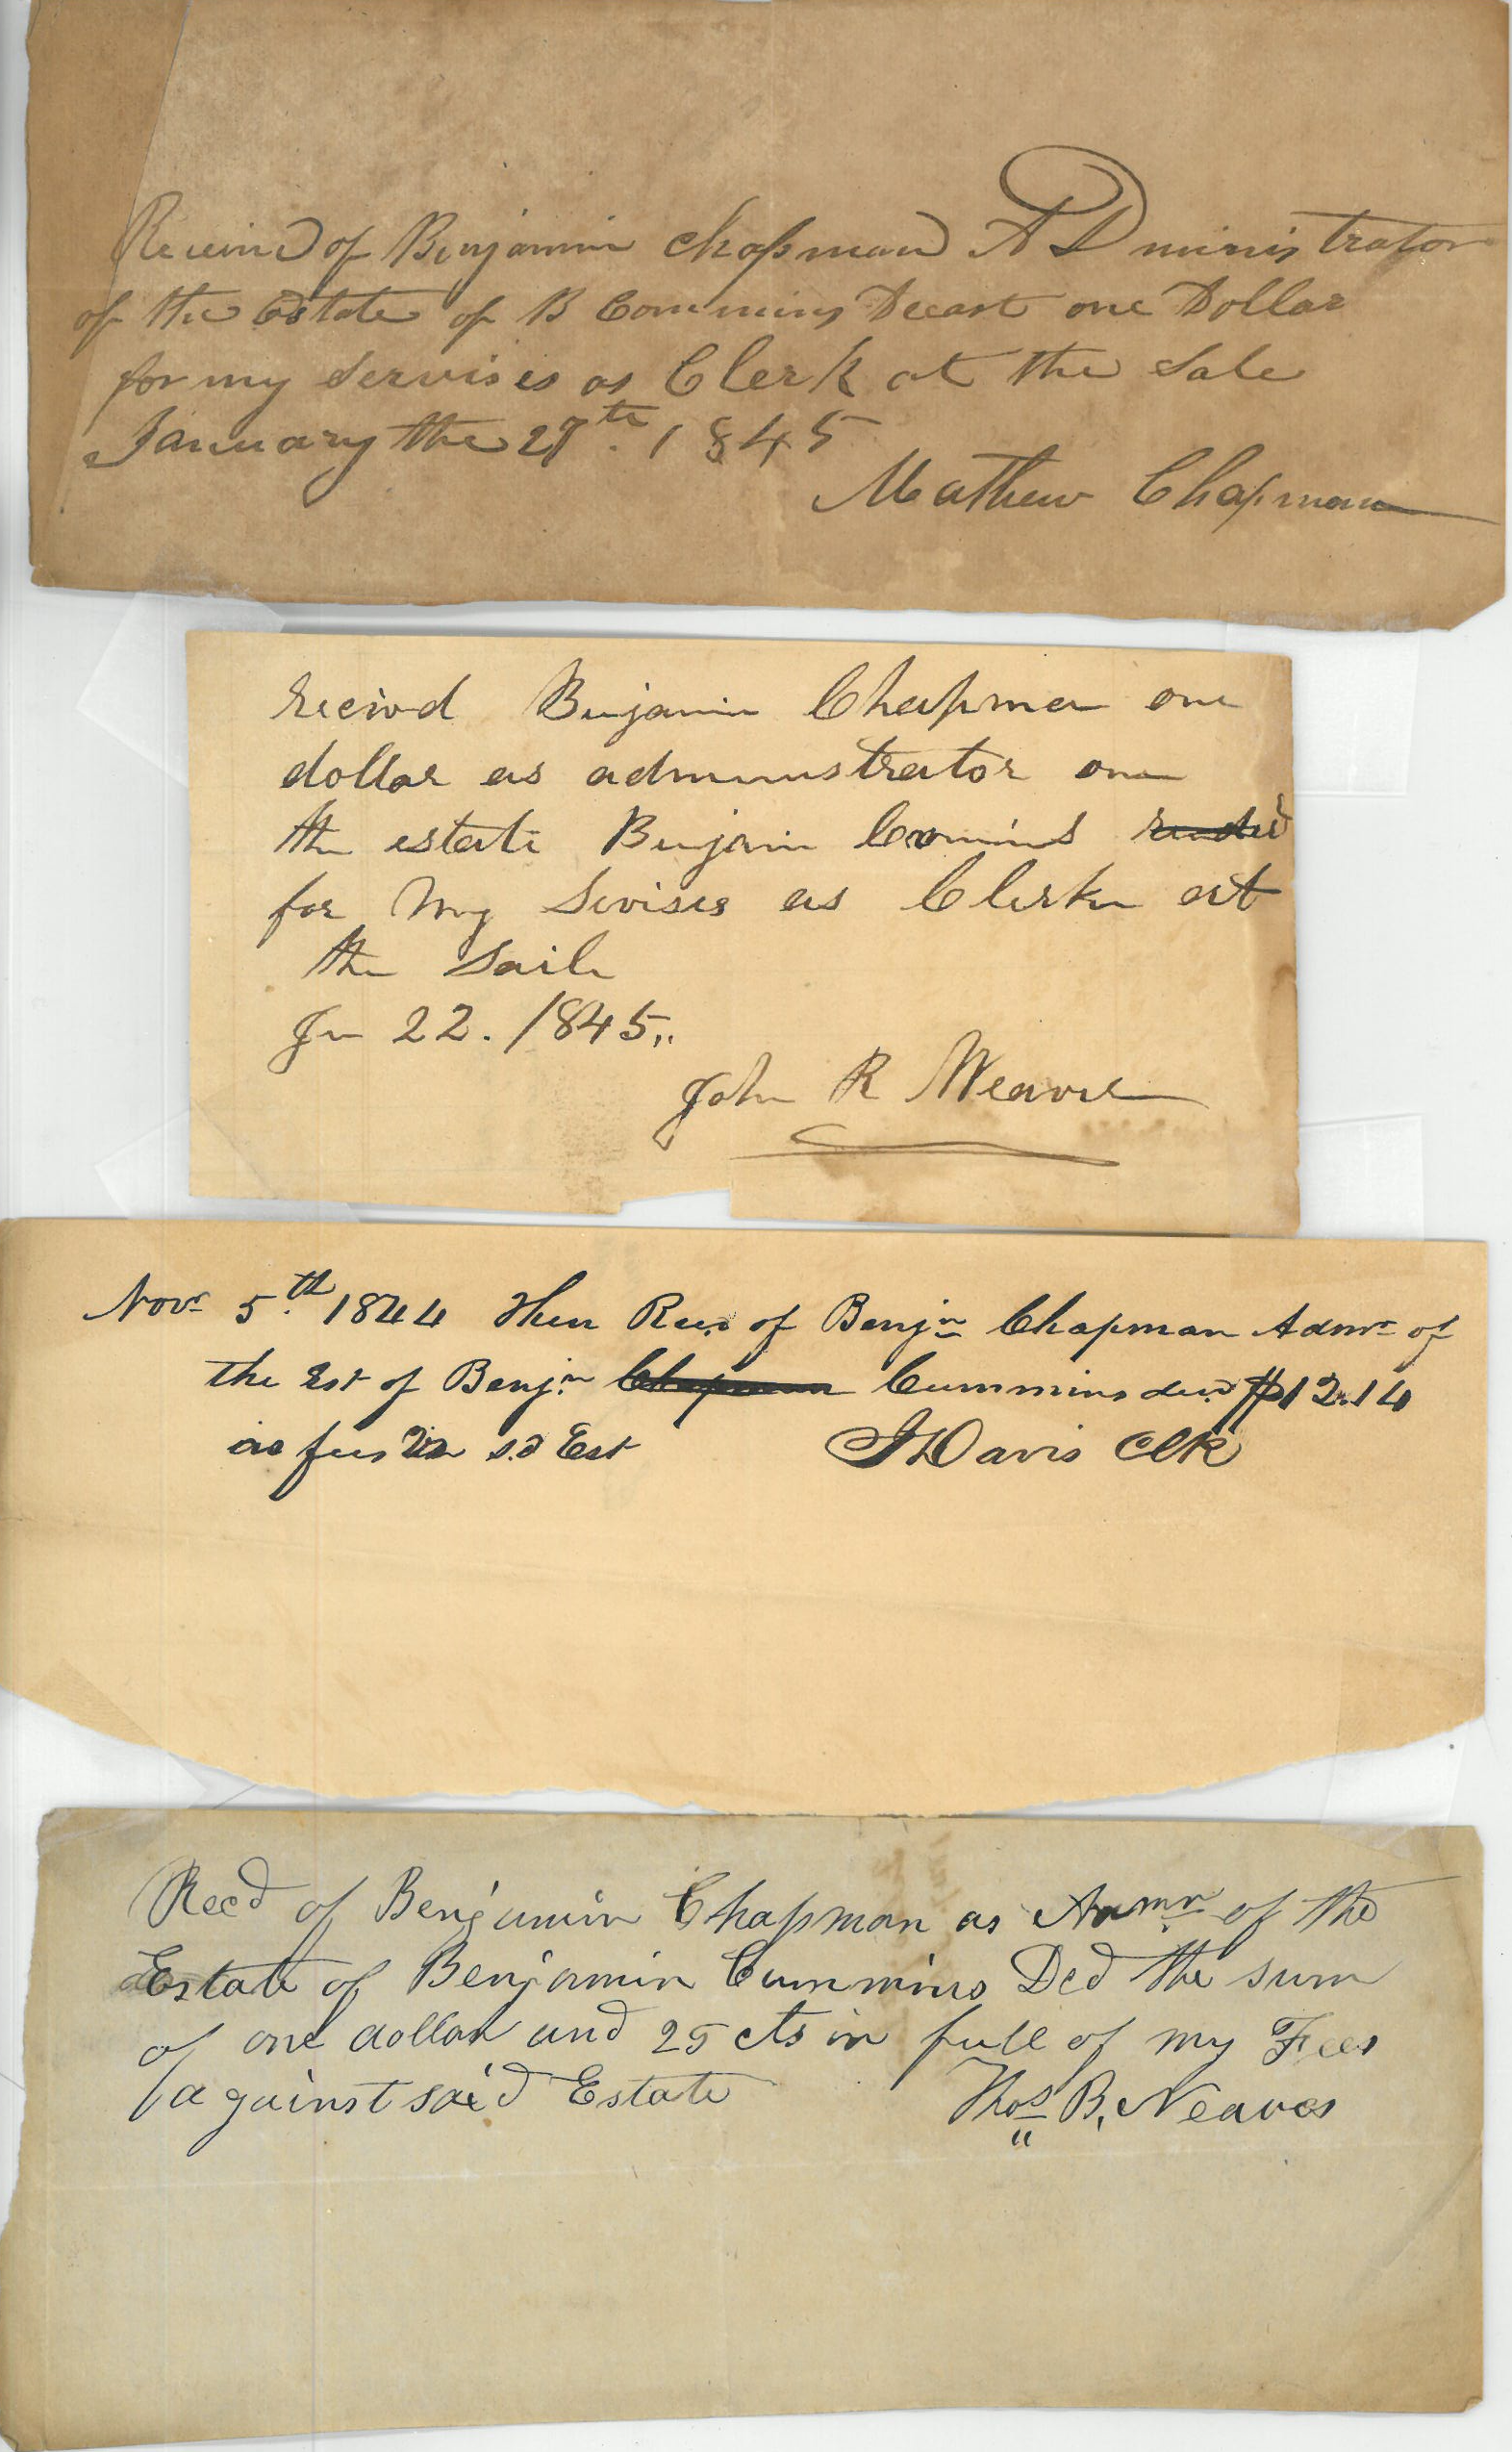 Received of Benjamin Chapman ADministrator
of the Estate of B Commins Deceast one Dollar
for my servises as Clerk at the Sale
January the 27th. 1845
Mathew Chapman
recivd Benjamin Chapman one
dollar as administrator one
the estate Benjamin Comins
for My Sevises as Clerke at
the Saile
Jn 22. 1845,,
John R Weaver
Novr 5th. 1844 then Recd of Benjn Chapman Admr of
the Est of Benjn Chapman Cummins decd $12.14
as fees in sd Est
J Davis Clk
Recd of Benjamin Chapman as Admr of the
Estate of Benjamin Cummins Dcd the sum
of one dollar and 25 cts in full of my Fees
against said Estate
Thos B. Neaves